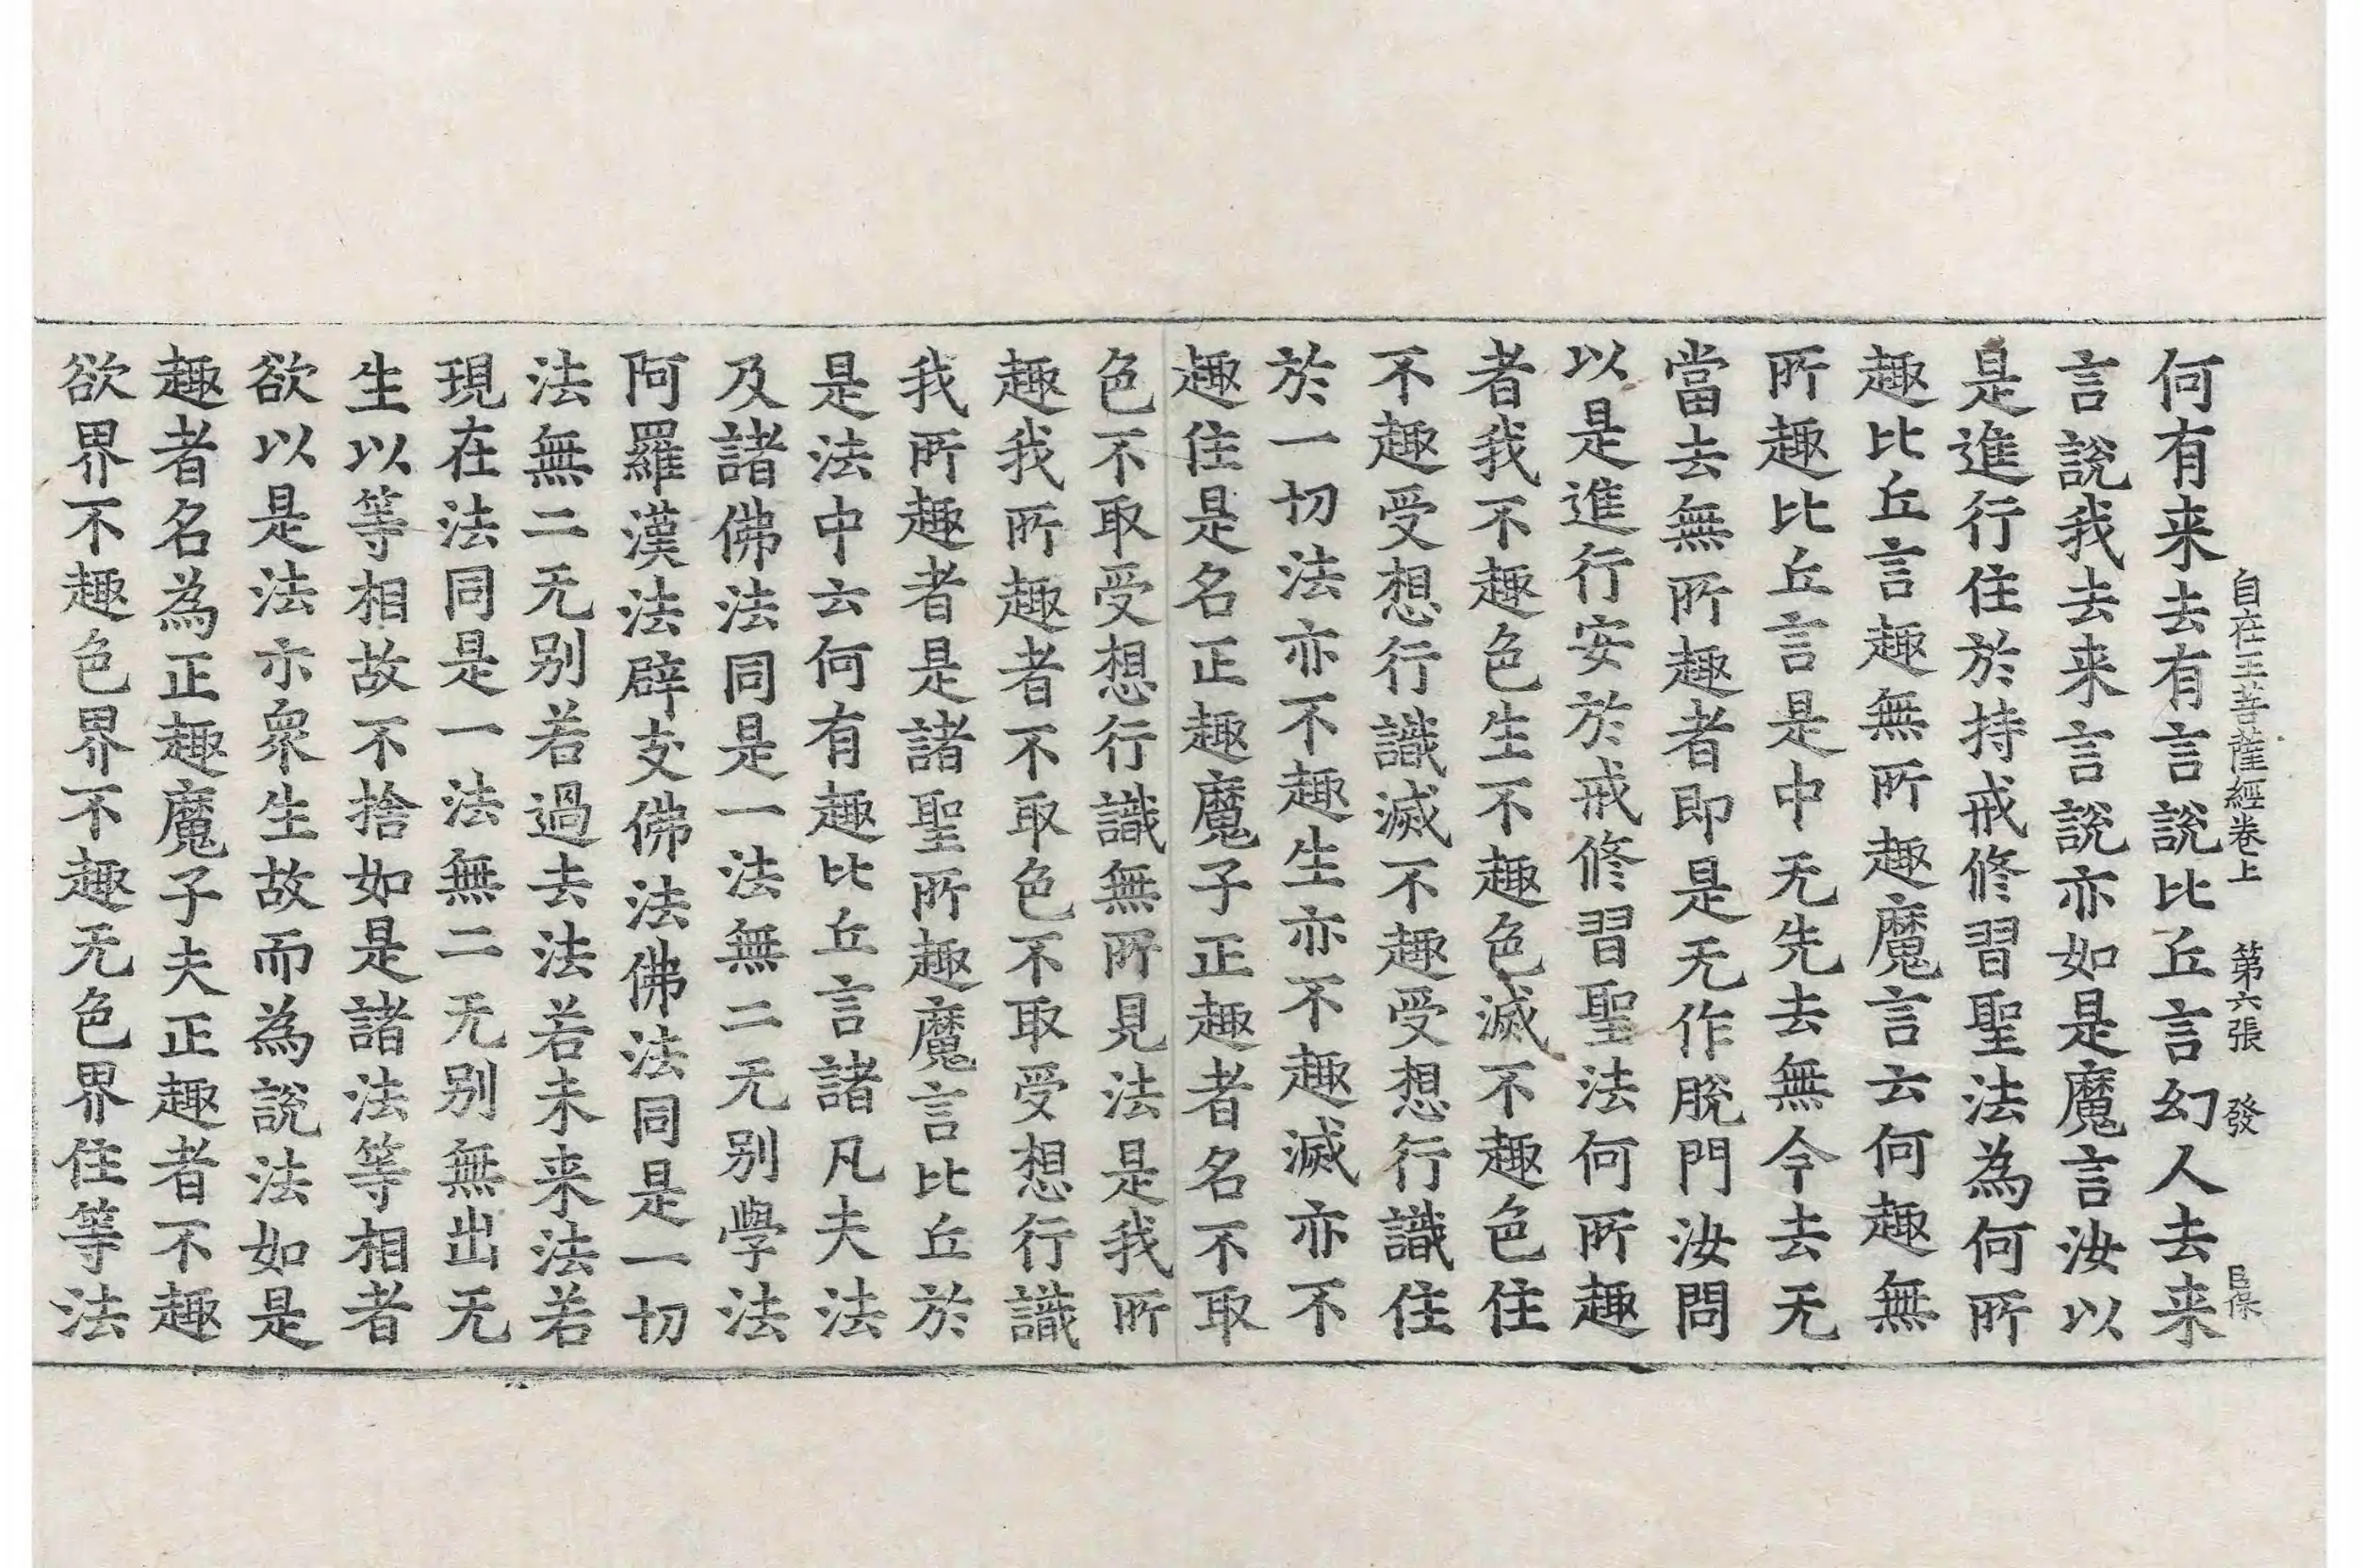 自在王菩薩經卷上 第六張 發
何有来去有言說比丘言幻人去来
言說我去来言說亦如是魔言汝以
是進行住於持戒修習聖法為何所
趣比丘言趣無所趣魔言云何趣無
所趣比丘言是中无先去無今去无
當去無所趣者即是无作脫門汝問
以是進行安於戒修習聖法何所趣
者我不趣色生不趣色滅不趣色住
不趣受想行識滅不趣受想行識住
於一切法亦不趣生亦不趣滅亦不
趣住是名正趣魔子正趣者名不取
色不取受想行識無所見法是我所
趣我所趣者不取色不取受想行識
我所趣者是諸聖所趣魔言比丘於
是法中云何有趣比丘言諸凡夫法
及諸佛法同是一法無二无別學法
阿羅漢法辟支佛法佛法同是一切
法無二无別若過去法若未来法若
現在法同是一法無二无別無出无
生以等相故不捨如是諸法等相者
欲以是法亦衆生故而為說法如是
趣者名為正趣魔子夫正趣者不趣
欲界不趣色界不趣无色界住等法